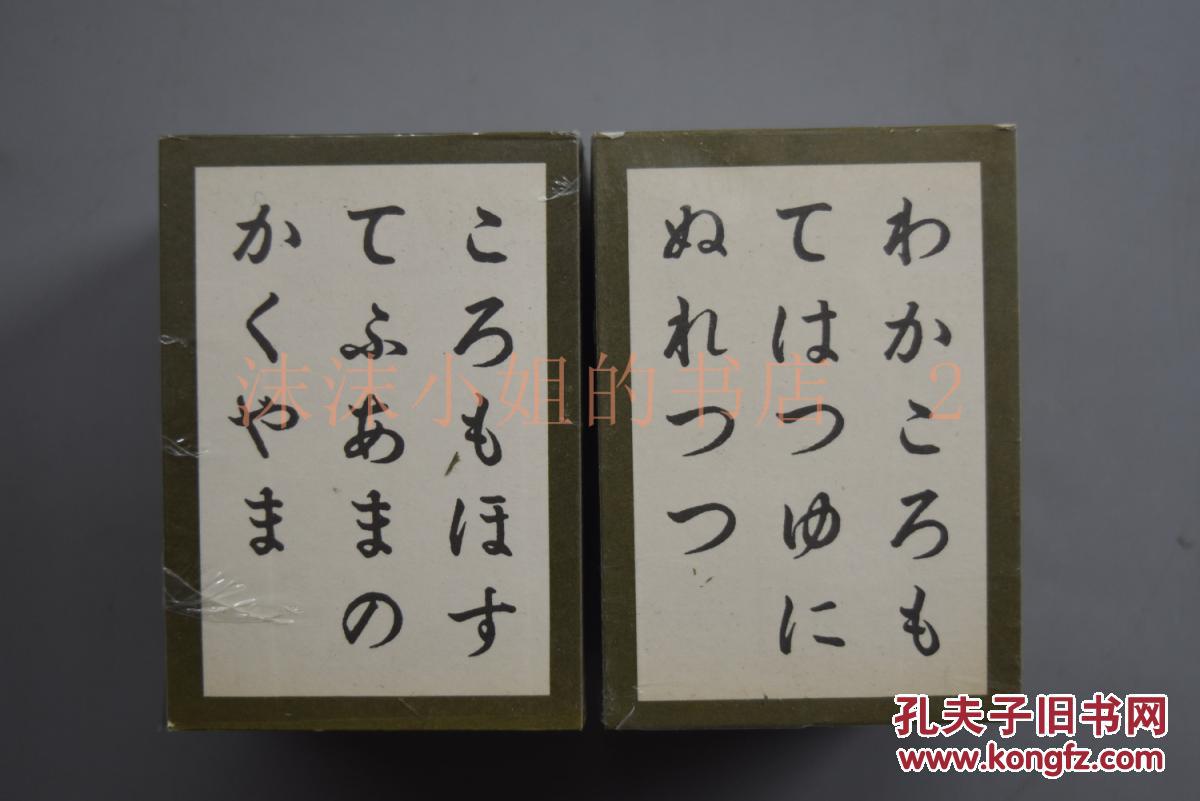 わかころも
てはつゆに
ぬれつつ
ころもほす
てふあまの
かくやま
沫沫小姐的书店 2
孔夫子旧书网
www.kongfz.com